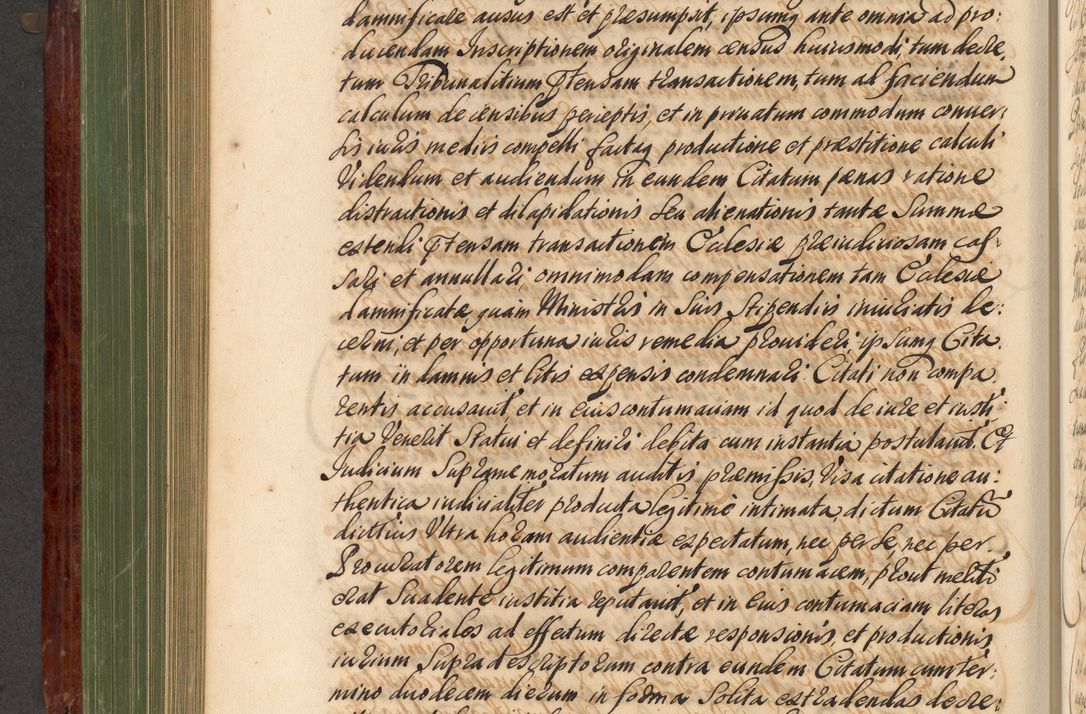 damnificare ausus est et præsumpsit, ipsumq ante omnia ad pro:
ducendam Inscriptionem originalem census huiusmodi tum decre
tum Tribunalitium ptensam transactionem, tum ad faciendum
calculum de censibus perceptis, et in privatum commodum conver
sis iuris mediis compelli factaq productione et præstitione calculi
Videndum et audiendum in eundem Citatum pænas ratione
distractionis et dilapidationis seu alienationis tantæ Summæ
extendi ptensam transactionem Ecclesiæ præiudiciosam cas
sari et annullari, omnimodam compensationem tam Ecclesiæ
damnificatæ, quam Ministris in Suis Stipendiis iniuriatis de:
cerni, et per opportuna iuris remedia provideri ipsumq Cita
tum in damnis et litis expensis condemnari. Citati non compa
rentis accusavit, et in eius contumaciam id quod de iure et iusti
tia Venerit Statui et definiri debita cum instantia postulavit. Et
Iudicium Suprame moratum auditis præmissis, Visa citatione au:
thentica iudicialiter producta legitime intimata, dictum Citatū
diutius Ultra horam audientiæ expectatum, nec per se, nec per
Procuratorem legitimum comparentem contumacem, prout meliti
erat Suadente iustitia reputavit, et in Eius contumaciam literas
executoriales ad effectum directæ responsionis, et productionis
iurium Supradescriptorum contra eundem Citatum cum ter:
mino duodecem dierum in forma Solita extradendas decre: